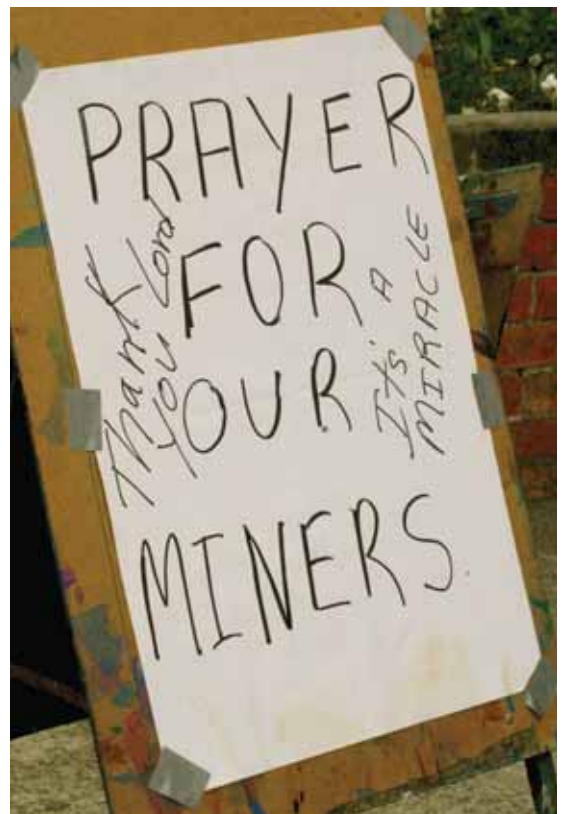 PRAYER
FOR
OUR
MINERS.
Thank
you Lord
It's A
MIRACLE